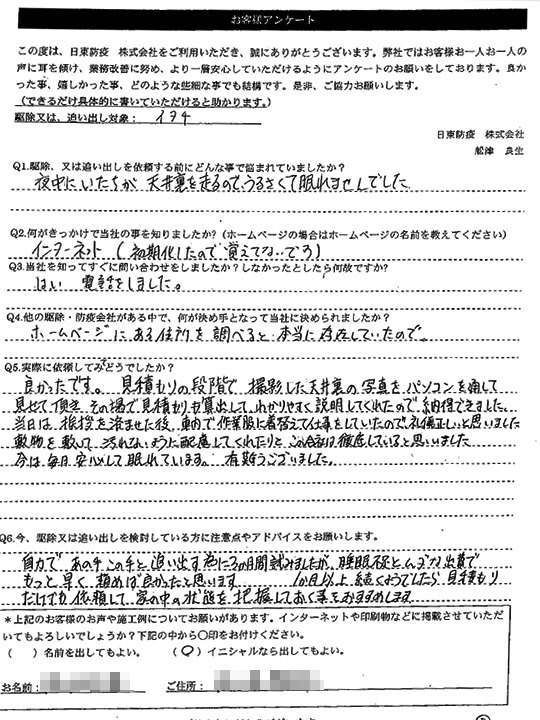 お客様アンケート
この度は、日東防疫 株式会社をご利用いただき、誠にありがとうございます。弊社ではお客様お一人お一人の
声に耳を傾け、業務改善に努め、より一層安心していただけるようにアンケートのお願いをしております。良か
った事、嬉しかった事、どのような些細な事でも結構です。是非、ご協力お願いします。
(できるだけ具体的に書いていただけると助かります。)
駆除又は、追い出し対象: イタチ
日東防疫 株式会社
舩津 良生
Q1.駆除、又は追い出しを依頼する前にどんな事で悩まれていましたか?
夜中にいたちが天井裏を走るので、うるさくて眠れませんでした
Q2.何がきっかけで当社の事を知りましたか?(ホームページの場合はホームページの名前を教えてください)
インターネット (初期化したので覚えてないです)
Q3.当社を知ってすぐに問い合わせをしましたか?しなかったとしたら何故ですか?
はい 電話をしました。
Q4.他の駆除・防疫会社がある中で、何が決め手となって当社に決められましたか?
ホームページにある住所を調べると本当に存在していたので。
Q5.実際に依頼してみどうでしたか?
良かったです。見積もりの段階で撮影した天井裏の写真をパソコンを通して
見せて頂き その場で見積もりも算出して、わかりやすく説明してくれたので納得できました。
当日は挨拶を済ませた後、車内で作業服に着替えて仕事をしていたので礼儀正しいと思いました
敷物を敷いて 汚れないように配慮してくれたりと、この会社は徹底していると思いました
今は毎日安心して眠れています。有難うございました。
Q6.今、駆除又は追い出しを検討している方に注意点やアドバイスをお願いします。
自力であの手この手と追い出す為に3ヶ月間試みましたが、睡眠不足とムダな出費で
もっと早く頼めば良かったと思います 1か月以上続くようでしたら見積もり
だけでも依頼して、家の中の状態を把握しておく事をおすすめします
*上記のお客様のお声や施工例についてお願いがあります。インターネットや印刷物などに掲載させていただ
いてもよろしいでしょうか?下記の中から〇印をお付けください。
( )名前を出してもよい。 (〇)イニシャルなら出してもよい。
お名前: ご住所: